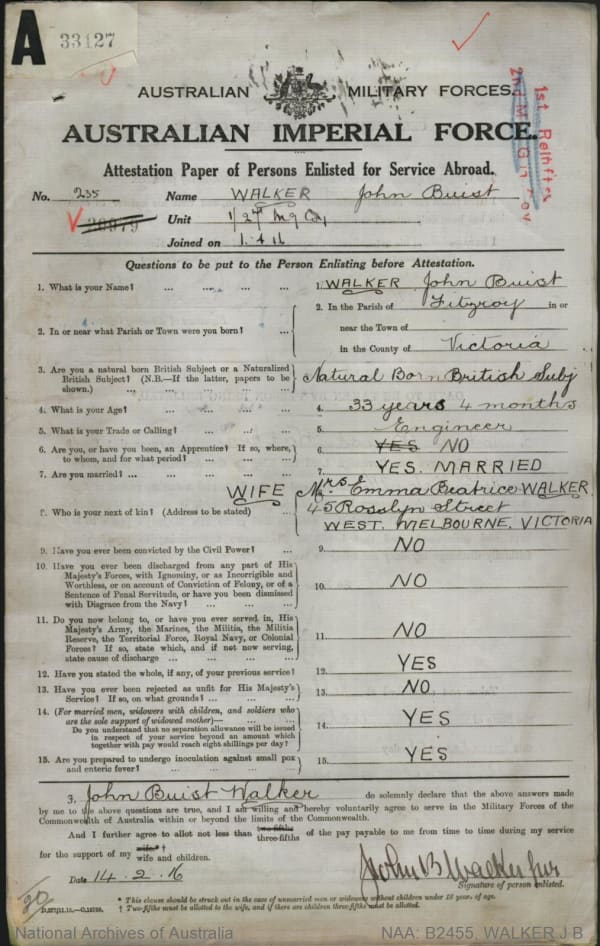 A
33127
AUSTRALIAN MILITARY FORCES.
AUSTRALIAN IMPERIAL FORCE.
1st Reinftes
Attestation Paper of Persons Enlisted for Service Abroad.
No. 235 Name WALKER John Buist
Unit
Joined on 1.4.16
Questions to be put to the Person Enlisting before Attestation.
1. What is your Name? ... ... ... ... 1. WALKER John Buist
2. In or near what Parish or Town were you born? ... 2. In the Parish of Fitzroy in or
near the Town of
in the County of Victoria
3. Are you a natural born British Subject or a Naturalized
British Subject? (N.B.—If the latter, papers to be
shown.) ... ... ... ... 3. Natural Born British Subj
4. What is your Age? ... ... ... ... 4. 33 years 4 months
5. What is your Trade or Calling? ... ... ... 5. Engineer
6. Are you, or have you been, an Apprentice? If so, where,
to whom, and for what period? ... ... ... 6. YES NO
7. Are you married? ... ... ... ... 7. YES. MARRIED
WIFE
8. Who is your next of kin? (Address to be stated) ... Mrs Emma Beatrice WALKER
45 Rosslyn Street
WEST. MELBOURNE, VICTORIA
9. Have you ever been convicted by the Civil Power? ... 9. NO
10. Have you ever been discharged from any part of His
Majesty's Forces, with Ignominy, or as Incorrigible and
Worthless, or on account of Conviction of Felony, or of a
Sentence of Penal Servitude, or have you been dismissed
with Disgrace from the Navy? ... ... ... 10. NO
11. Do you now belong to, or have you ever served in, His
Majesty's Army, the Marines, the Militia, the Militia
Reserve, the Territorial Force, Royal Navy, or Colonial
Forces? If so, state which, and if not now serving,
state cause of discharge ... ... ... ... 11. NO
12. Have you stated the whole, if any, of your previous service? 12. YES
13. Have you ever been rejected as unfit for His Majesty's
Service? If so, on what grounds? ... ... ... 13. NO
14. (For married men, widowers with children, and soldiers who
are the sole support of widowed mother)— ... ...
Do you understand that no separation allowance will be issued
in respect of your service beyond an amount which
together with pay would reach eight shillings per day? 14. YES
15. Are you prepared to undergo inoculation against small pox
and enteric fever? ... ... ... ... 15. YES
I, John Buist Walker do solemnly declare that the above answers made
by me to the above questions are true, and I am willing and hereby voluntarily agree to serve in the Military Forces of the
Commonwealth of Australia within or beyond the limits of the Commonwealth.
And I further agree to allot not less than two-fifths three-fifths of the pay payable to me from time to time during my service
for the support of my wife* † wife and children.
Date 14.2.16 John B Walker Jnr
Signature of person enlisted.
* This clause should be struck out in the case of unmarried men or widowers without children under 18 years of age.
† Two-fifths must be allotted to the wife, and if there are children three-fifths must be allotted.
National Archives of Australia NAA: B2455, WALKER J B